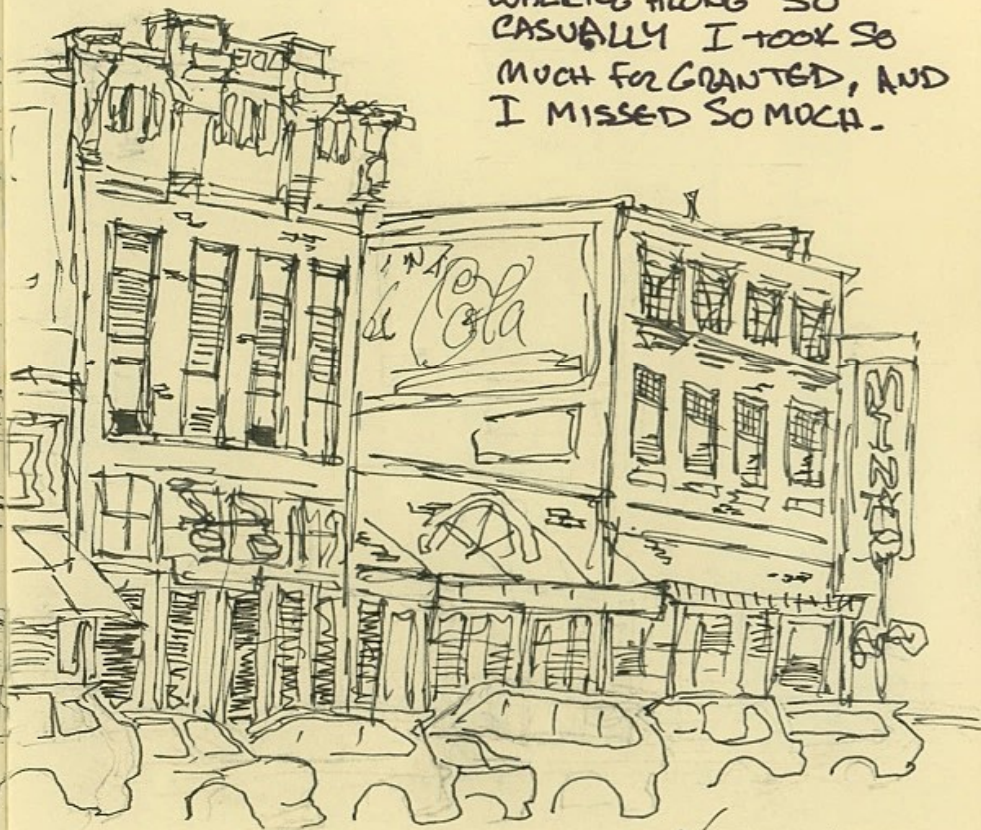 WALKING ALONG SO
CASUALLY I TOOK SO
MUCH FOR GRANTED, AND
I MISSED SO MUCH.
Cola